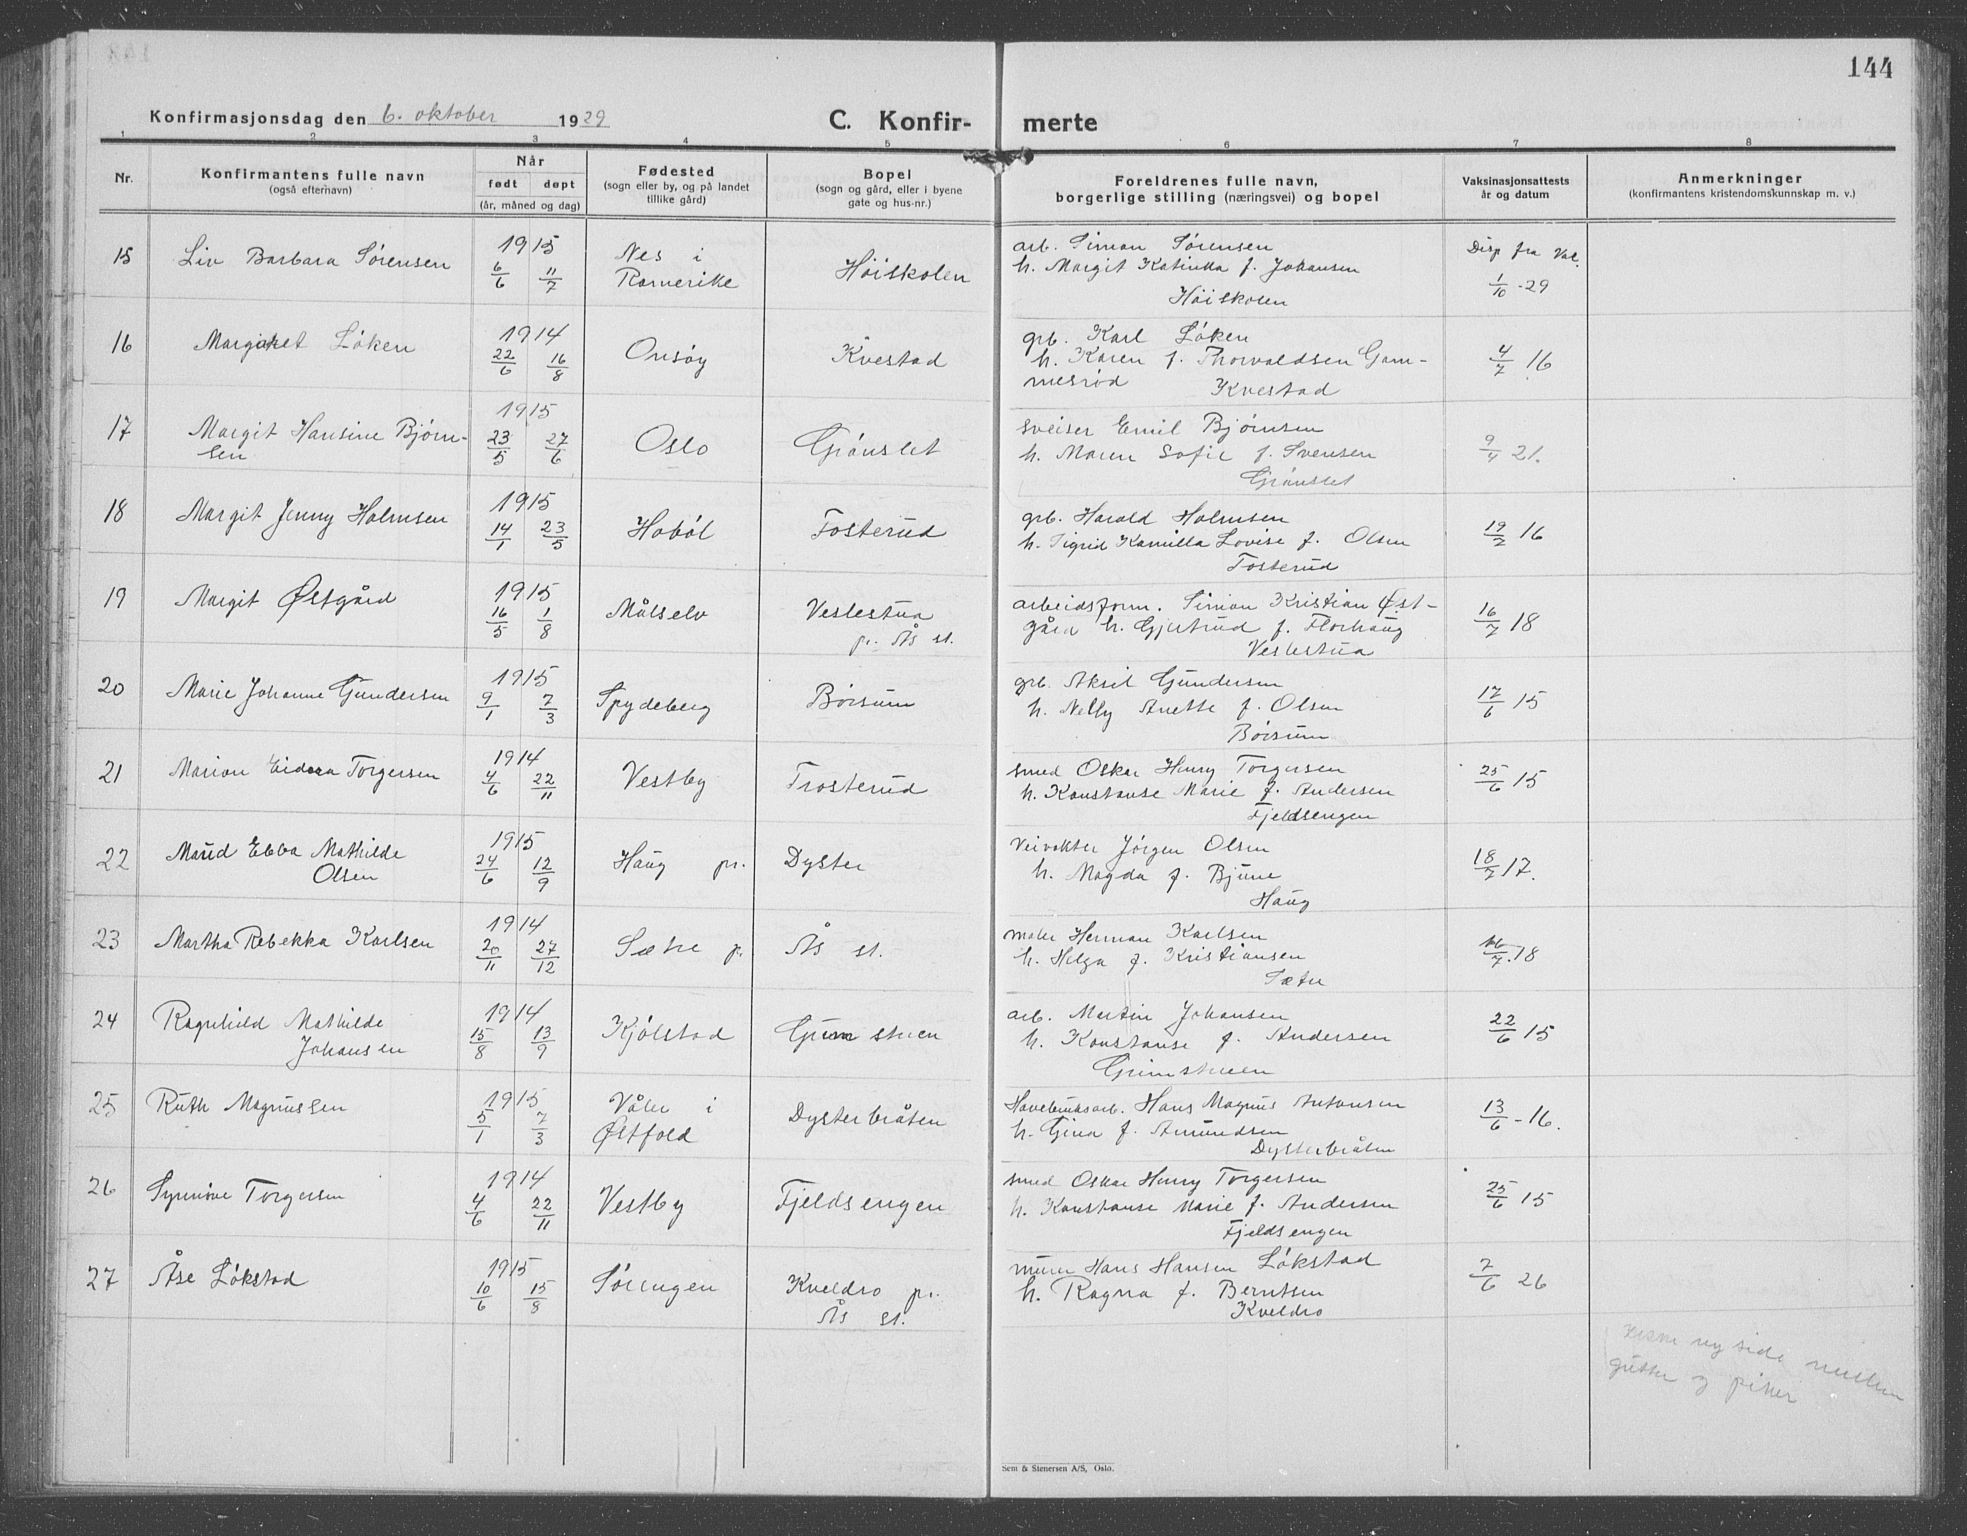 144
Konfirmasjonsdag den 6. oktober 1929
C. Konfir- merte
1 2 3 4 5 6 7 8
Nr.
Konfirmantens fulle navn
(også efternavn)
Når
født døpt
(år, måned og dag)
Fødested
(sogn eller by, og på landet
tillike gård)
Bopel
(sogn og gård, eller i byene
gate og hus-nr.)
Foreldrenes fulle navn,
borgerlige stilling (næringsvei) og bopel
Vaksinasjonsattests
år og datum
Anmerkninger
(konfirmantens kristendomskunnskap m. v.)
15 Liv Barbara Sørensen 1915 6/6 11/7 Nes i Høiskolen
arb. Simon Sørensen
h. Margit Katinka f. Johansen
Høiskolen
Disp fra Vak.
1/10 -29
16 Margaret Løken 1914 22/6 16/8 Onsøy Kvestad
grb. Karl Løken
h. Karen f. Thorvaldsen Gam-
mesrød Kvestad
4/7 16
17 Margit Hansine Bjørn-
sen 1915 23/5 27/6 Oslo Grønslet
sveiser Emil Bjørnsen
h. Maren Sofie f. Svensen
Grønslet
9/4 21.
18 Margit Jenny Holmsen 1915 14/1 23/5 Hobøl Tosterud
grb. Harald Holmsen
h. Sigrid Kamilla Lovise f. Olsen
Tosterud
19/2 16
19 Margit Østgård 1915 16/5 1/8 Målselv Veslestua
pr. Ås st.
arbeidsform. Simon Kristian Øst-
gård h. Gjertrud f. Florhaug
Veslestua
16/7 18
20 Marie Johanne Gundersen 1915 9/1 7/3 Spydeberg Børsum
grb. Aksel Gundersen
h. Nelly Anette f. Olsen
Børsum
17/6 15
21 Marion Torgersen 1914 4/6 22/11 Vestby Trosterud
smed Oskar Henry Torgersen
h. Konstanse Marie f. Andersen
Fjeldsengen
25/6 15
22 Maud Ebba Mathilde
Olsen 1915 24/6 12/9 Haug pr. Dyster
Veivokter Jørgen Olsen
h. Magda f. Bjune
Haug
18/7 17.
23 Martha Rebekka Karlsen 1914 20/11 27/12 Sætre p. Ås st.
maler Herman Karlsen
h. Helga f. Kristiansen
Sætre
16/7. 18
24 Ragnhild Mathilde
Johansen 1914 15/8 13/9 Kjølstad Grimstuen
arb. Martin Johansen
h. Konstanse f. Andersen
Grimstuen
22/6 15
25 Ruth Magnussen 1915 5/1 7/3 Våler i
Østfold Dysterbråten
Havebruksarb. Hans Magnus Antonsen
h. Gina f. Amundsen
Dysterbråten
13/6 - 16.
26 Synnøve Torgersen 1914 4/6 22/11 Vestby Fjeldsengen
smed Oskar Henry Torgersen
h. Konstanse Marie f. Andersen
Fjeldsengen
25/6 15
27 Åse Løkstad 1915 10/6 15/8 Sørengen Kveldro pr.
Ås st.
murer Hans Hansen Løkstad
h. Ragna f. Berntsen
Kveldro
7/6 26
ny side mellem
gutter og piker
Sem & Stenersen A/S, Oslo.